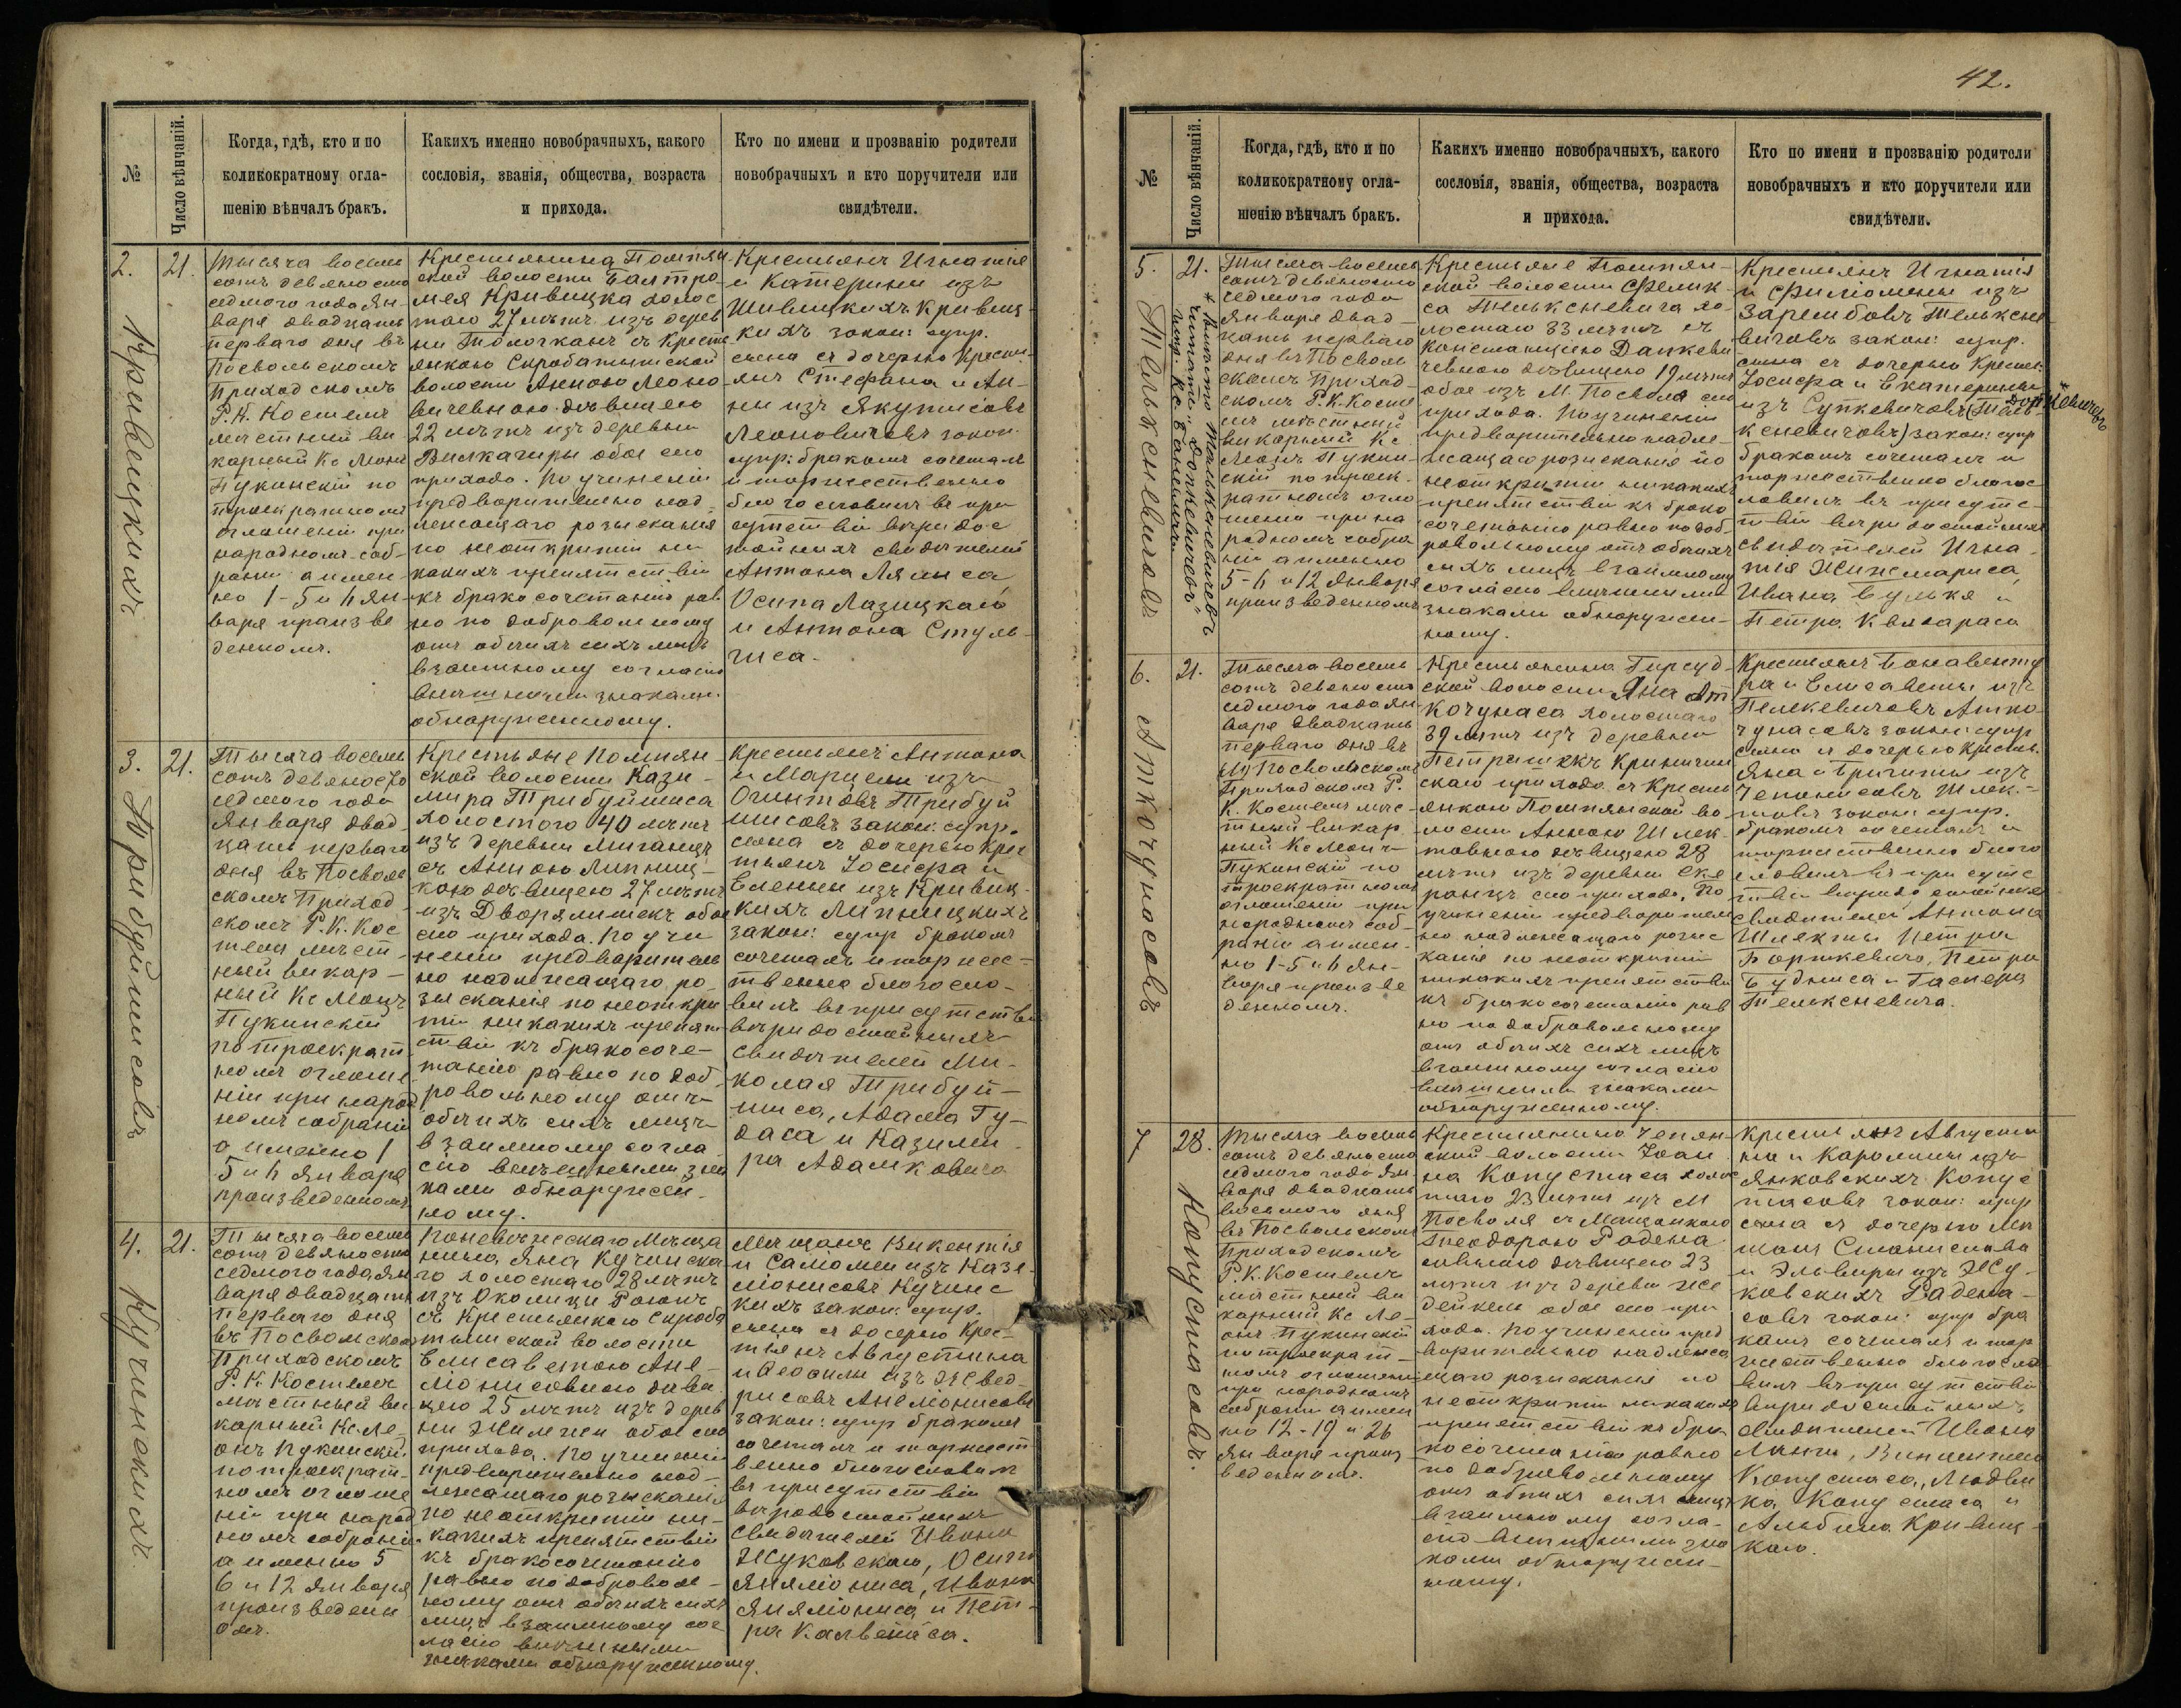 №
Число вѣнчаній.
Когда, гдѣ, кто и по
коликократному огла-
шенію вѣнчалъ бракъ.
Какихъ именно новобрачныхъ, какого
сословія, званія, общества, возраста
и прихода.
Кто по имени и прозванію родители
новобрачныхъ и кто поручители или
свидѣтели.
2.
Кривецкихъ
21.
Тысяча восемь
сотъ девяносто
седмого года Ян-
варя двадцать
перваго дня въ
Посвольскомъ
Приходскомъ
Р. К. Костелѣ
мѣстный ви
карный Кс Леонъ
Пукинскій по
троекратномъ
оглашеніи при
народномъ соб-
раніи а имен-
но 1-5 и 6 Ян-
варя произве
денномъ.
Крестьянина Помпян
ской волости Балтро-
мея Кривицка холос
таго 27 лѣтъ изъ дерев
ни Толочканъ съ Кресть-
янкою Скробатышской
волости Анною Леоно-
вичевною дѣвицею
22 лѣтъ изъ деревни
Вилкагиры обое сего
прихода. По учиненіи
предварительно над-
лежащаго розысканія
по неоткрытіи ни
какихъ препятствій
къ бракосочетанію рав
но по добровольному
отъ обоихъ сихъ лицъ
взаимному согласію
внѣшними знаками
обнаруженному.
Крестьянъ Игнатія
и Катерины изъ
Шивицкихъ Кривец-
кихъ закон: супр.
сына съ дочерью кресть-
янъ Стефана и Ан-
ны изъ Якутисовъ
Леоновичевъ закон.
супр: бракомъ сочеталъ
и торжественно
благословилъ въ при
сутствіи вѣридос
тойныхъ свидѣтелей
Антона Лялиса
Осипа Лазицкаго
и Антона Стуль-
гиса.
3.
Трибуйшисовъ
21.
Тысяча восемь
сотъ девяносто
седмого года
Января двад-
цать перваго
дня въ Посволь
скомъ Приход-
скомъ Р. К. Кос
телѣ мѣст-
ный викар-
ный Кс Леонъ
Пукинскій
по троекрат-
номъ оглаше
ніи при народ
номъ собраніи
а именно 1
5 и 6 Января
произведенномъ
Крестьяне Помпян-
ской волости Кази-
мира Трибуйшиса
холостого 40 лѣтъ
изъ деревни Миганцъ
съ Анною Липниц-
кою дѣвицею 27 лѣтъ
изъ Дворялишекъ обое
сего прихода. По учи
неніи предваритель
но надлежащаго ро-
зысканія по неоткры
тіи никакихъ препят
ствій къ бракосоче-
танію равно по доб-
ровольному отъ
обоихъ сихъ лицъ
взаимному согла-
сію внѣшними зна
ками обнаружен-
ному.
Крестьянъ Антона
и Марцели изъ
Огинтовъ Трибуй
шисовъ закон: супр.
сына съ дочерью крес
тьянъ Іосифа и
Елены изъ Кривиц-
кихъ Липницкихъ
закон: супр бракомъ
сочеталъ и торжес-
твенно благосло-
вилъ въ присутствіи
вѣридостойныхъ
свидѣтелей Ми-
колая Трибуй-
шиса, Адама Гу-
даса и Казими
ра Адамковича
4.
Кучинскихъ.
21.
Тысяча восемь
сотъ девяносто
седмого года Ян
варя двадцать
перваго дня
въ Посвольскомъ
Приходскомъ
Р. К. Костелѣ
мѣстный ви
карный Кс Ле-
онъ Пукинскій
по троекрат-
номъ оглаше
ніи при народ
номъ собраніи
а именно 5
6 и 12 Января
произведенн
омъ.
Поневѣжескаго Мѣща
нина Яна Кучинска
го холостаго 28 лѣтъ
изъ Околицы Роюнъ
съ Крестьянкою Скроба
тышской волости
Елисаветою Ане-
ліонисовною дѣви
цею 25 лѣтъ изъ дерев
ни Жилпеи обое сего
прихода. По учиненіи
предварительно над-
лежащаго розысканія
по неоткрытіи ни-
какихъ препятствій
къ бракосочетанію
равно по доброволь-
ному отъ обоихъ сихъ
лицъ взаимному сог
ласію внѣшними
знаками обнаруженному.
Мѣщанъ Викентія
и Саломеи изъ Казе-
ліонисовъ Кучинс
кихъ закон: супр.
сына съ дочерью Крес-
тьянъ Августина
и Теофили изъ
рисовъ Анеліонисовъ
закон: супр бракомъ
сочеталъ и торжест
венно благословилъ
въ присутствіи
вѣридостойныхъ
свидѣтелей Ивана
Жуковскаго, Осипа
Аняліониса, Ивана
Аняліониса и Пет-
ра Калвейтиса.
42.
№
Число вѣнчаній.
Когда, гдѣ, кто и по
коликократному огла-
шенію вѣнчалъ бракъ.
Какихъ именно новобрачныхъ, какого
сословія, званія, общества, возраста
и прихода.
Кто по имени и прозванію родители
новобрачныхъ и кто поручители или
свидѣтели.
5.
Тельксневичовъ
21.
* Вмѣсто Тельксневичевъ
читать: „Допкевичевъ“
Тысяча восемь
сотъ девяносто
седмого года
Января двад-
цать перваго
дня въ Посволь
скомъ Приход-
скомъ Р. К. Косте
лѣ мѣстный
викарный Кс
Леонъ Пукин-
скій по троек-
ратномъ огла
шеніи при на
родномъ собра
ніи а именно
5-6 и 12 Января
произведенномъ
Крестьяне Помпян-
ской волости Фелик-
са Тельксневича хо-
лостаго 33 лѣтъ съ
Констанціею Данкеви
чевною дѣвицею 19 лѣтъ
обое изъ М. Посволя сего
прихода. По учиненіи
предварительно надле-
жащаго розысканія по
неоткрытіи никакихъ
препятствій къ брако
сочетанію равно по доб-
ровольному отъ обоихъ
сихъ лицъ взаимному
согласію внѣшними
знаками обнаружен-
ному.
Крестьянъ Игнатія
и Филіомены изъ
Зарембовъ Тельксне
вичовъ закон: супр.
сына съ дочерью Крест:
Іосифа и Екатерины
изъ Супкевичовъ (Тель-
ксневичовъ) закон: супр
Допкевичевъ
бракомъ сочеталъ и
торжественно благос
ловилъ въ присутс-
твіи вѣридостойныхъ
свидѣтелей Игна-
тія Жинемариса
Ивана Булькя и
Петра Квядараса
6.
Аткочунасовъ
21.
Тысяча восемь
сотъ девяносто
седмого года Ян
варя двадцать
перваго дня въ
Посвольскомъ
Приходскомъ Р.
К. Костелѣ мѣс-
тный викар
ный Кс Леонъ
Пукинскій по
троекратномъ
оглашеніи при
народномъ соб-
раніи а имен-
но 1-5 и 6 Ян-
варя произве
денномъ.
Крестьянина Гирсуд-
ской волости Яна Ат
кочунаса холостаго
39 лѣтъ изъ деревни
Петрашекъ Криничин
скаго прихода съ Кресть
янкою Помпянской во
лости Анною Шлек-
товною дѣвицею 28
лѣтъ изъ деревни Ске
ранцъ сего прихода. По
учиненіи предваритель
но надлежащаго розыс
канія по неоткрытіи
никакихъ препятствій
къ бракосочетанію рав
но по добровольному
отъ обоихъ сихъ лицъ
взаимному согласію
внѣшними знаками
обнаруженному.
Крестьянъ Бонавенту
ры и Елисаветы изъ
Пелкевичовъ Атко-
чунасовъ закон: супр
сына съ дочерью кресть.
Яна и Бригиты изъ
Чепонисовъ Шлек-
товъ закон: супр.
бракомъ сочеталъ и
торжественно благо
словилъ въ присутс
твіи вѣридостойныхъ
свидѣтелей Антона
Шлекты Петра
Борткевича, Петра
Будниса и Гаспера
Телксневича.
7
Копустасовъ.
28.
Тысяча восемь
сотъ девяносто
седмого года Ян
варя двадцать
восьмого дня
въ Посвольскомъ
Приходскомъ
Р. К. Костелѣ
мѣстный ви
карный Кс Ле-
онъ Пукинскій
по троекрат-
номъ оглашеніи
при народномъ
собраніи а имен
но 12-19 и 26
Января произ-
веденномъ.
Крестьянина Чепян
ской волости Іоан
на Копустаса холос
таго 23 лѣтъ изъ М
Посволя съ Мѣщанкою
Ѳеодорою Радена
совною дѣвицею 23
лѣтъ изъ деревни Же
дейкель обое сего при
хода. По учиненіи пред
варительно надлежа
щаго розысканія по
неоткрытіи никакихъ
препятствій къ бра
косочетанію равно
по добровольному
отъ обоихъ сихъ лицъ
взаимному согла-
сію внѣшними зна
ками обнаружен-
ному.
Крестьянъ Августи
на и Каролины изъ
Янковскихъ Копус
тасовъ закон: супр
сына съ дочерью Мѣ
щанъ Станислава
и Эльвиры изъ Жу-
ковскихъ Радена-
совъ закон: супр бра
комъ сочеталъ и тор
жественно благосло
вилъ въ присутствіи
вѣридостойныхъ
свидѣтелей Ивана
Ланги, Викентія
Копустаса, Людви
ка Копустаса и
Альбина Кривиц-
каго.